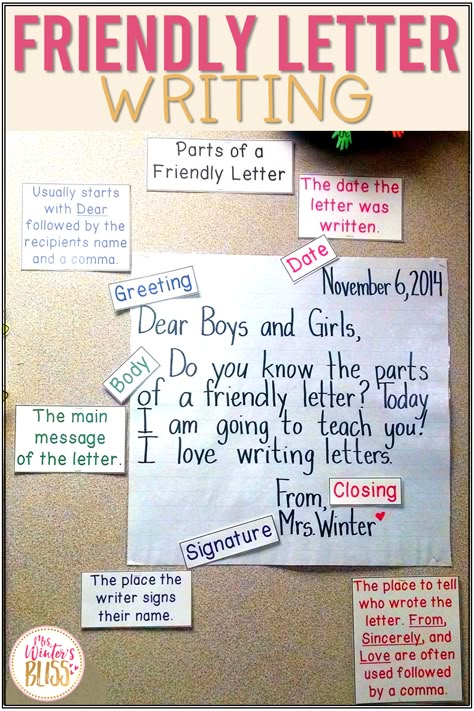 FRIENDLY LETTER
WRITING
Parts of a
Friendly Letter
Usually starts
with Dear
followed by the
recipients name
and a comma.
The date the
letter was
written.
Date
Greeting
November 6, 2014
Dear Boys and Girls,
Body
Do you know the parts
of a friendly letter? Today
I am going to teach you!
I love writing letters.
The main
message
of the letter.
From,
Closing
Mrs. Winter
Signature
The place the
writer signs
their name.
The place to tell
who wrote the
letter. From,
Sincerely, and
Love are often
used followed
by a comma.
Mrs.
Winter's
BLISS